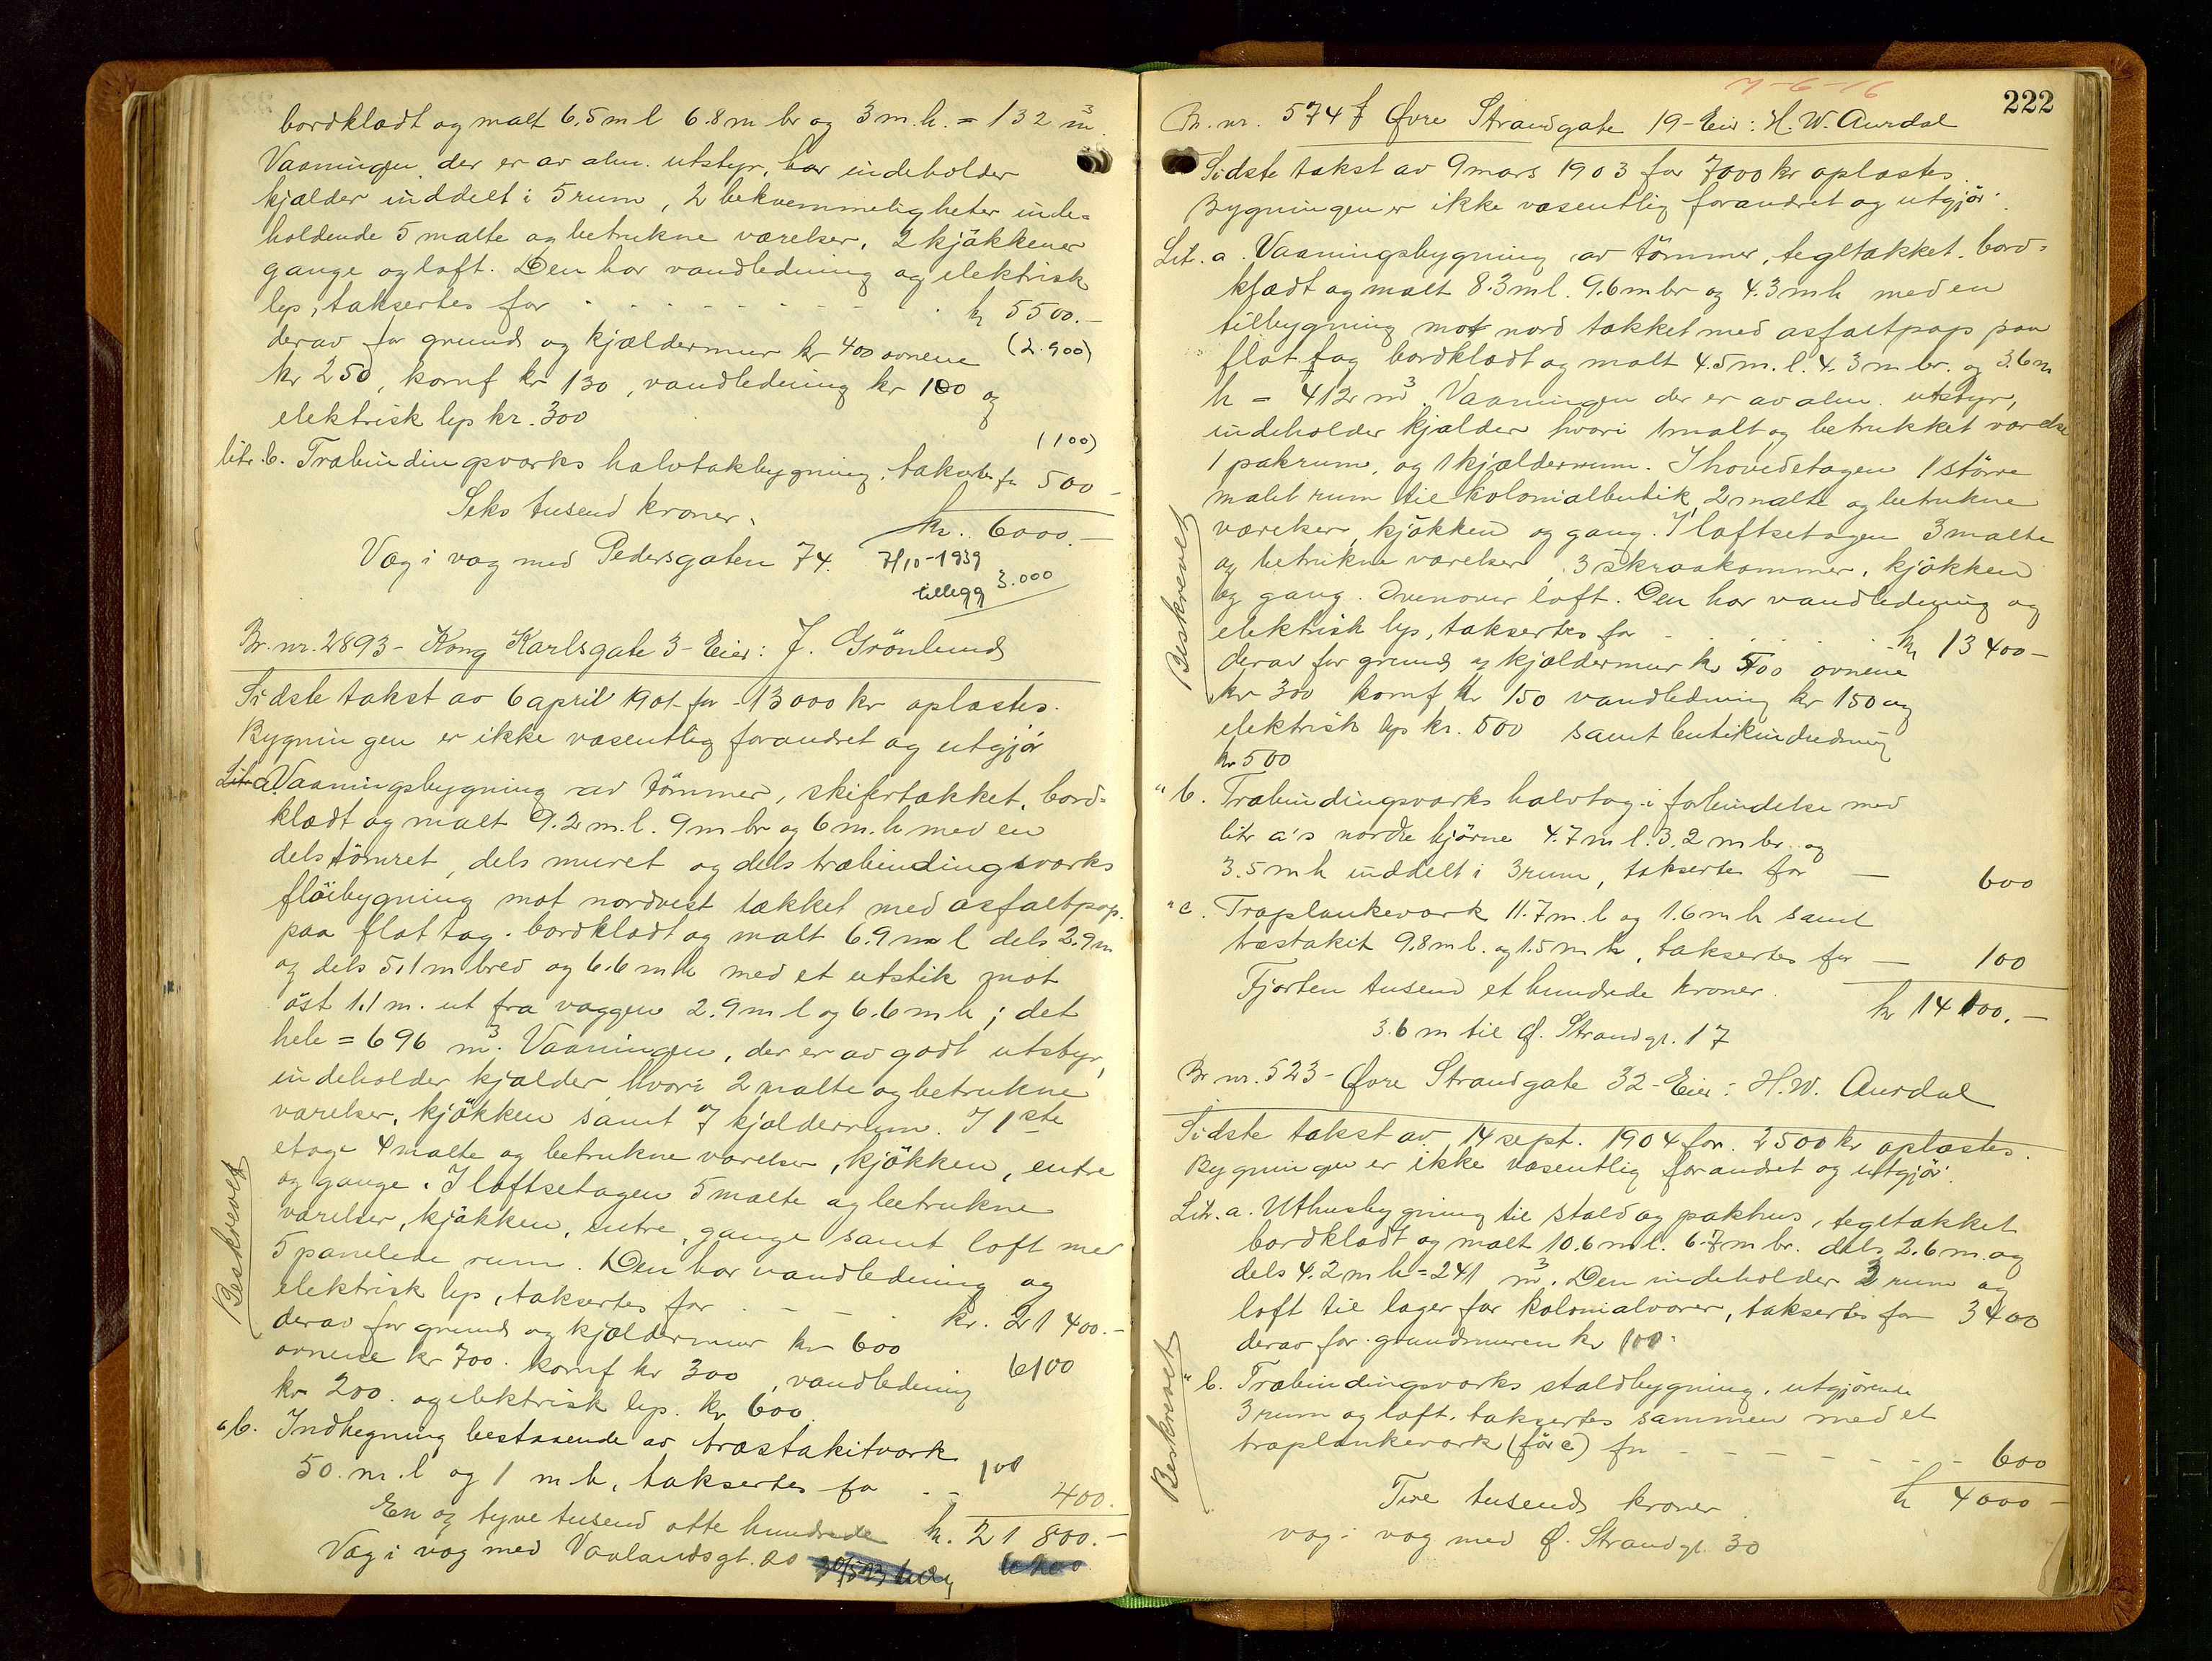 bordklædt og malt 6.5 m l 6.8 m br og 3 m.h. = 132 m³.
Vaaningen der er av alm. utstyr, har indeholder
kjælder inddelt i 5 rum, 2 bekvemmeligheter inde=
holdende 5 malte og betrukne værelser, 2 kjøkkener
gange og loft. Den har vandledning og elektrisk
lys, taksertes for - - - - - kr 5500.-
derav for grund og kjældermur kr 400 ovnene (2.900)
kr 250, komf kr 130, vandledning kr 100 og
elektrisk lys kr. 300
(100)
litr. b. Træbindingsværks halvtakbygning, taksertes for 500 -
Seks tusend kroner. kr. 6000.-
Væg i væg med Pedersgaten 74. 7/10-1939
tillegg 3.000
Br. nr. 2893 - Kong Karlsgate 3 - Eier: J. Grönlund
Sidste takst av 6 april 1901 for - 13000 kr oplæstes.
Bygningen er ikke væsentlig forandret og utgjör
Litr a. Vaaningsbygning av tömmer, skifertækket, bord=
klædt og malt 9.2 m.l. 9 m br og 6 m.h med en
dels tömret, dels muret og dels træbindingsværks
flöibygning mot nordvest tækket med asfaltpap.
paa flat tag. bordklædt og malt 6.9 m l dels 2.9 m
og dels 5.1 m bred og 6.6 m h med et utstik mot
öst 1.1 m. ut fra væggen 2.9 m l og 6.6 m h; det
hele = 696 m³. Vaaningen, der er av godt utstyr,
indeholder kjælder, hvori 2 malte og betrukne
værelser, kjökken samt 7 kjælderrum. I 1ste
etage 4 malte og betrukne værelser, kjökken, entre
og gange. I loftsetagen 5 malte og betrukne
værelser, kjökken, entre, gange samt loft med
5 panelede rum. Den har vandledning og
elektrisk lys, taksertes for - - kr. 21400.-
Beskrevet
derav for grund og kjældermur kr 600
ovnene kr 700. komf kr 300, vandledning 6100
kr 200. og elektrisk lys. kr 600
" b. Indhegning bestaaende av træstakitværk
50. m.l og 1 m h, taksertes for - - 100 400.
En og tyve tusend otte hundrede kr. 21800.-
Væg i væg med Vaalandsgt. 20
7-6-16
222
Br. nr. 574 f Øvre Strandgate 19 - Eier: H. W. Aurdal
Sidste takst av 9 mars 1903 for 7000 kr oplæstes.
Bygningen er ikke væsentlig forandret og utgjör:
Lit. a. Vaaningsbygning av tömmer, tegltækket. bord=
klædt og malt 8.3 m l. 9.6 m br og 4.3 m h med en
tilbygning mot nord tækket med asfaltpap paa
flat tag bordklædt og malt 4.5 m. l. 4.3 m br. og 3.6 m
h = 412 m³. Vaaningen der er av alm. utstyr,
indeholder kjælder hvori 1 malt og betrukket værelse
1 pakrum, og 1 kjælderrum. I hovedetagen 1 större
malet rum til kolonialbutik, 2 malte og betrukne
værelser, kjökken og gang. I loftsetagen 3 malte
og betrukne værelser, 3 skraakammer, kjökken
og gang. Ovenover loft. Den har vandledning og
elektrisk lys, taksertes for - - - - kr 13400-
Beskrevet
derav for grund og kjældermur kr 500 ovnene
kr 300 komf kr 150 vandledning kr 150 og
elektrisk lys kr. 500 samt butikindredning
kr 500
" b. Træbindingsværks halvtag i forbindelse med
litr a's nordre hjörne 4.7 m l. 3.2 m br. og
3.5 m h inddelt i 3 rum, taksertes for — 600
" c. Træplankeværk 11.7 m. l og 1.6 m h samt
træstakit 9.8 m l. og 1.5 m h, taksertes for — 100
Fjorten tusend et hundrede kroner. kr 14100.-
3.6 m til Ø. Strandgt. 17
Br nr. 523 - Øvre Strandgate 32 - Eier: H.W. Aurdal
Sidste takst av 14 sept. 1904 for 2500 kr oplæstes.
Bygningen er ikke væsentlig forandret og utgjör:
Litr. a. Uthusbygning til stald og pakhus, tegltækket
bordklædt og malt 10.6 m l. 6.7 m br. dels 2.6 m. og
dels 4.2 m h = 241 m³. Den indeholder 3 rum og
loft til lager for kolonialvarer, taksertes for 3400
derav for grundmuren kr 100.
" b. Træbindingsværks staldbygning, utgjörende
3 rum og loft. taksertes sammen med et
træplankeværk (för c) for - - - - - - 600
Beskrevet
Fire tusend kroner kr 4000 -
væg i væg med Ø. Strandgt. 30